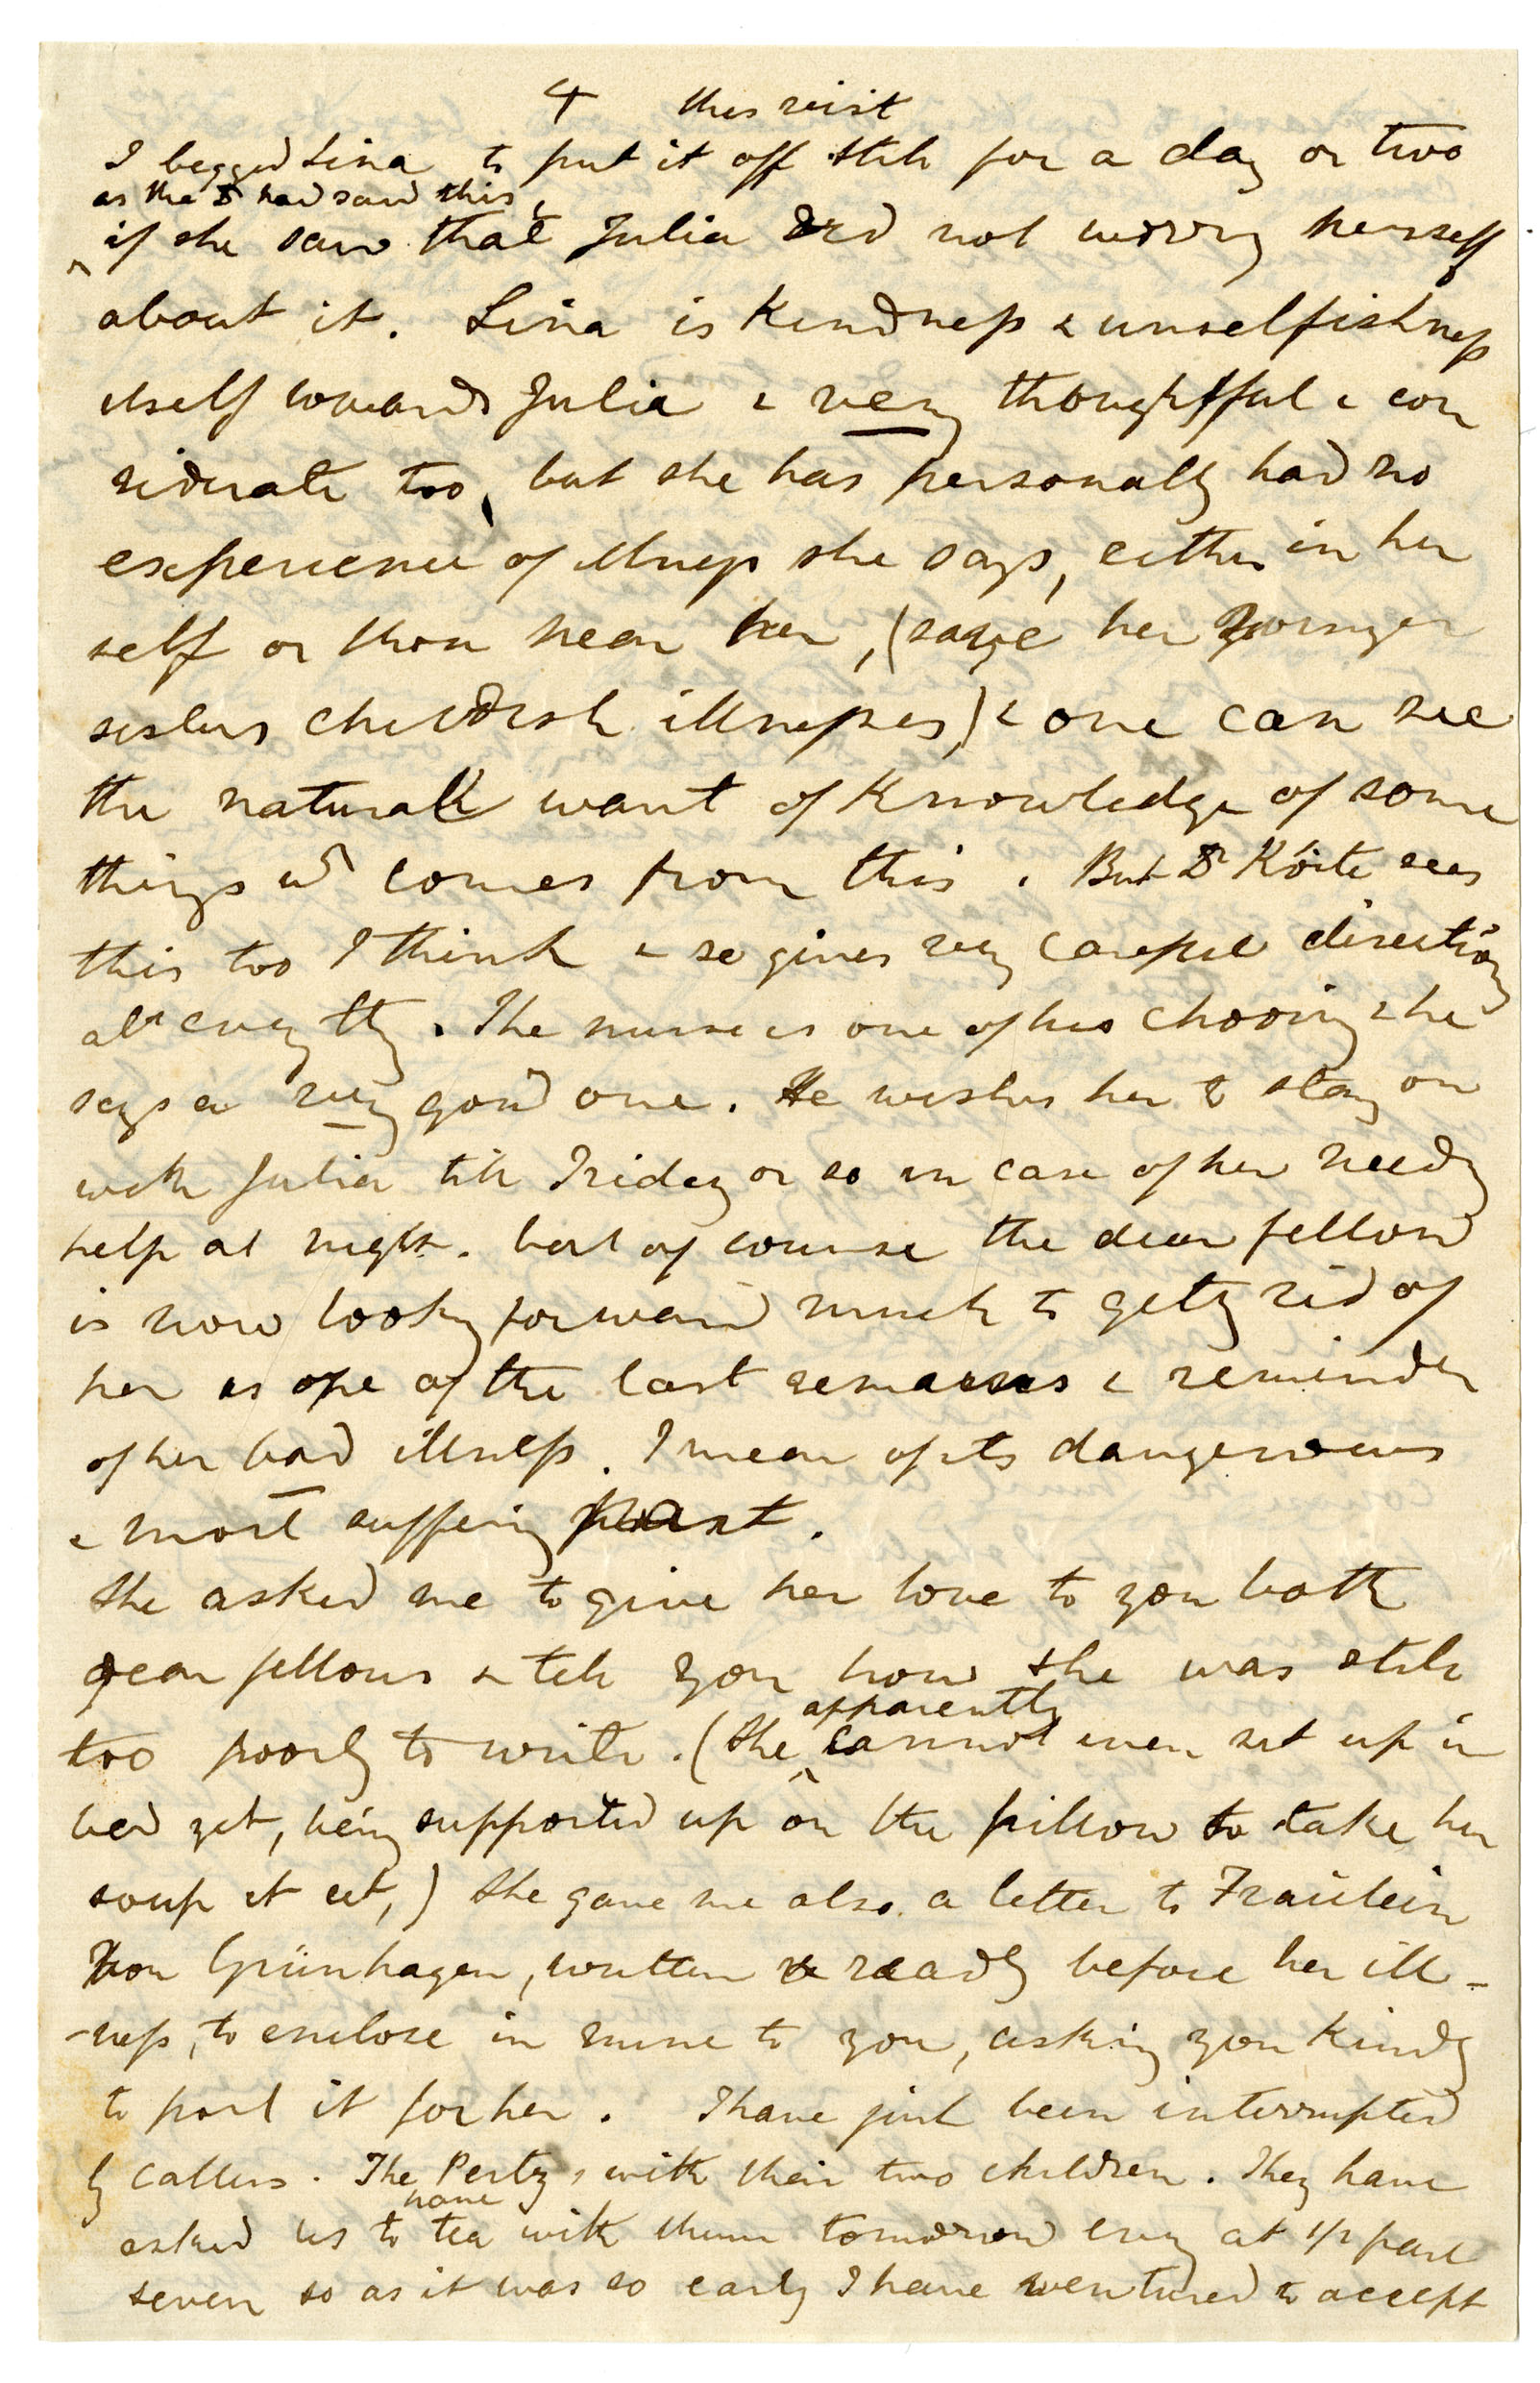 4 this visit
I begged Lina to put it off still for a day or two
as the Dr had said this,
if she saw that Julia did not worry herself
about it. Lina is kindness & unselfishness
itself towards Julia & very thoughtful & con
siderate too, but she has personally had no
experience of illness she says, either in her
self or those near her, (save her younger
sisters childish illnesses,) & one can see
the natural want of knowledge of some
things wh comes from this. But Dr Körte sees
this too I think & so gives very careful directions
abt every thg. The nurse is one of his choosing & he
says a very good one. He wishes her to stay on
with Julia till Friday or so in case of her needg
help at night. but of course the dear fellow
is now lookg forward much to gettg rid of
her as one of the last remains & reminder
of her bad illness. I mean of its dangerous
& most suffering part.
She asked me to give her love to you both
dear fellows & tell you how she was still
too poorly to write. (She apparently cannot even sit up in
bed yet, being supported up on the pillow to take her
soup it et,) She gave me also a letter to Fraülein
Von Grünhagen, written already before her ill-
-ness, to enclose in mine to you, asking you kindly
to post it for her. I have just been interrupted
by callers. The Pertz, with their two children. They have
asked us to have tea with them tomorrow eveng at 1/2 past
seven so as it was so early I have ventured to accept